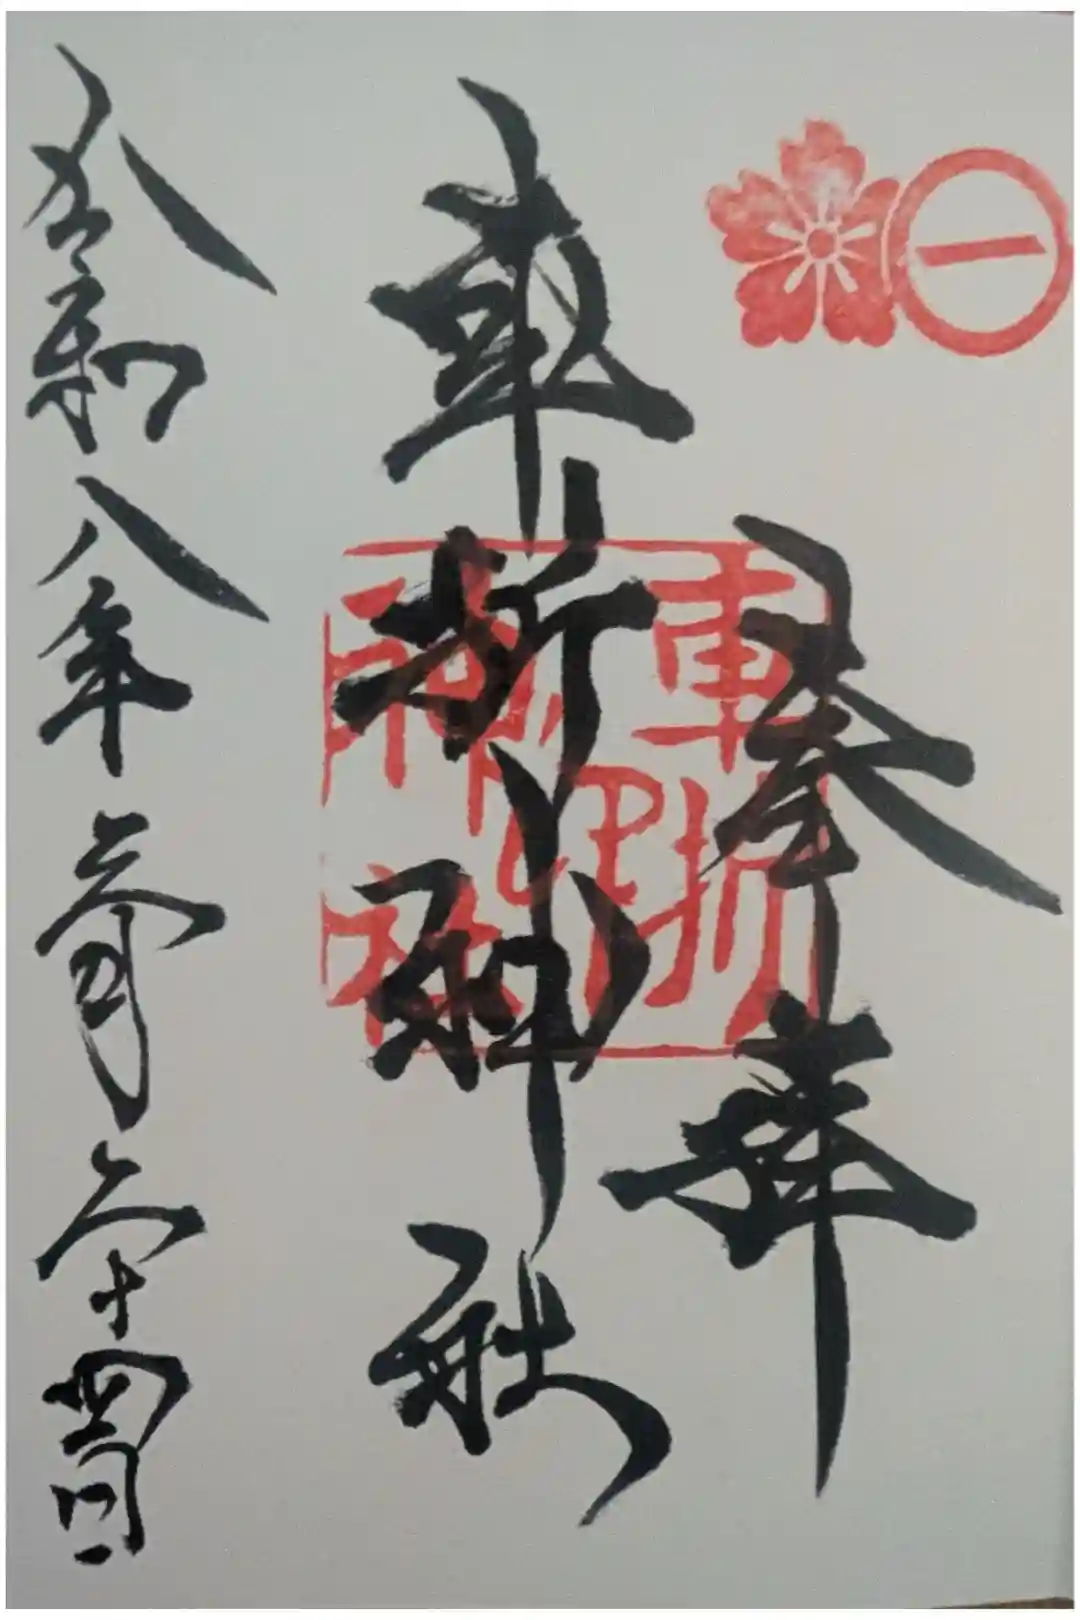 一
奉拝
車折神社
車折
印
神社
令和八年 月 十四日